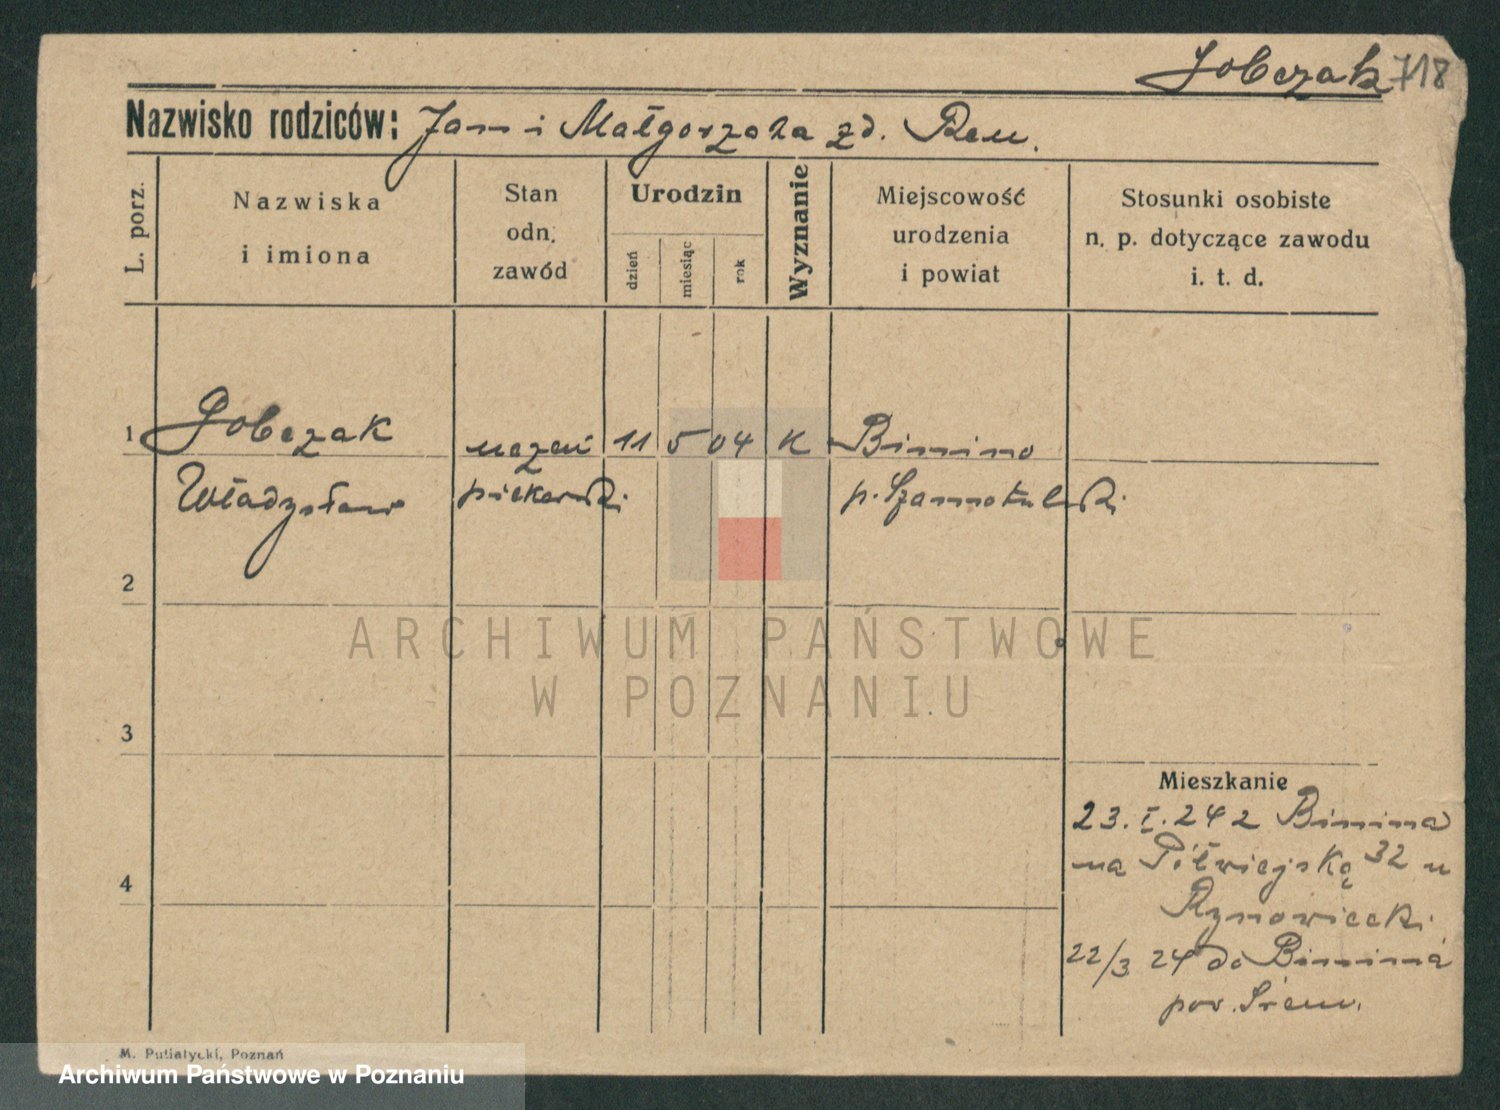 Jobczak 718
Nazwisko rodziców: Jan i Małgorzata zd. Reu.
L. porz.
Nazwiska
i imiona
Stan
odn.
zawód
Urodzin
dzień
miesiąc
rok
Wyznanie
Miejscowość
urodzenia
i powiat
Stosunki osobiste
n. p. dotyczące zawodu
i. t. d.
1 Jobczak uczeń 11 5 04 K Binino
Władysław piekarski p. Szamotulski
2
ARCHIWUM PAŃSTWOWE
W POZNANIU
3
Mieszkanie
23. I. 24 z Binina
na Półwiejską 32 u
4
Rynowiecki.
22/3 24 do Binina
pow. Śrem.
M. Putiatycki, Poznań
Archiwum Państwowe w Poznaniu